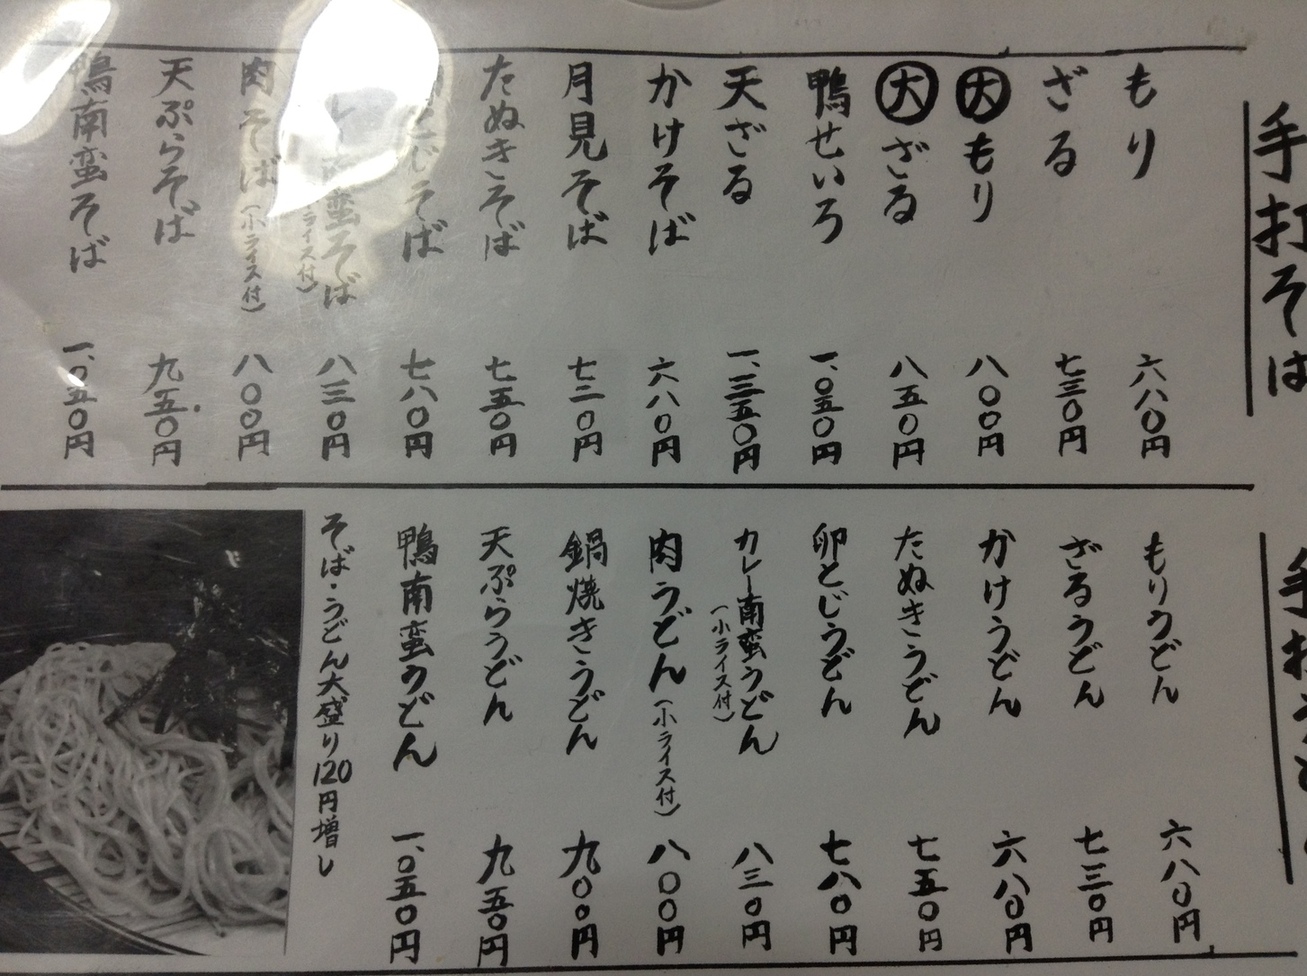 手打そば
もり 六八〇円
ざる 七三〇円
大もり 八〇〇円
大ざる 八五〇円
鴨せいろ 一、〇五〇円
天ざる 一、三五〇円
かけそば 六八〇円
月見そば 七三〇円
たぬきそば 七五〇円
とじそば 七八〇円
南蛮そば 八三〇円
ライス付)
肉そば(小ライス付) 八〇〇円
天ぷらそば 九五〇円
鴨南蛮そば 一、〇五〇円
手打うど
もりうどん 六八〇円
ざるうどん 七三〇円
かけうどん 六八〇円
たぬきうどん 七五〇円
卵とじうどん 七八〇円
カレー南蛮うどん 八三〇円
(小ライス付)
肉うどん(小ライス付) 八〇〇円
鍋焼きうどん 九〇〇円
天ぷらうどん 九五〇円
鴨南蛮うどん 一、〇五〇円
そば・うどん大盛り120円増し